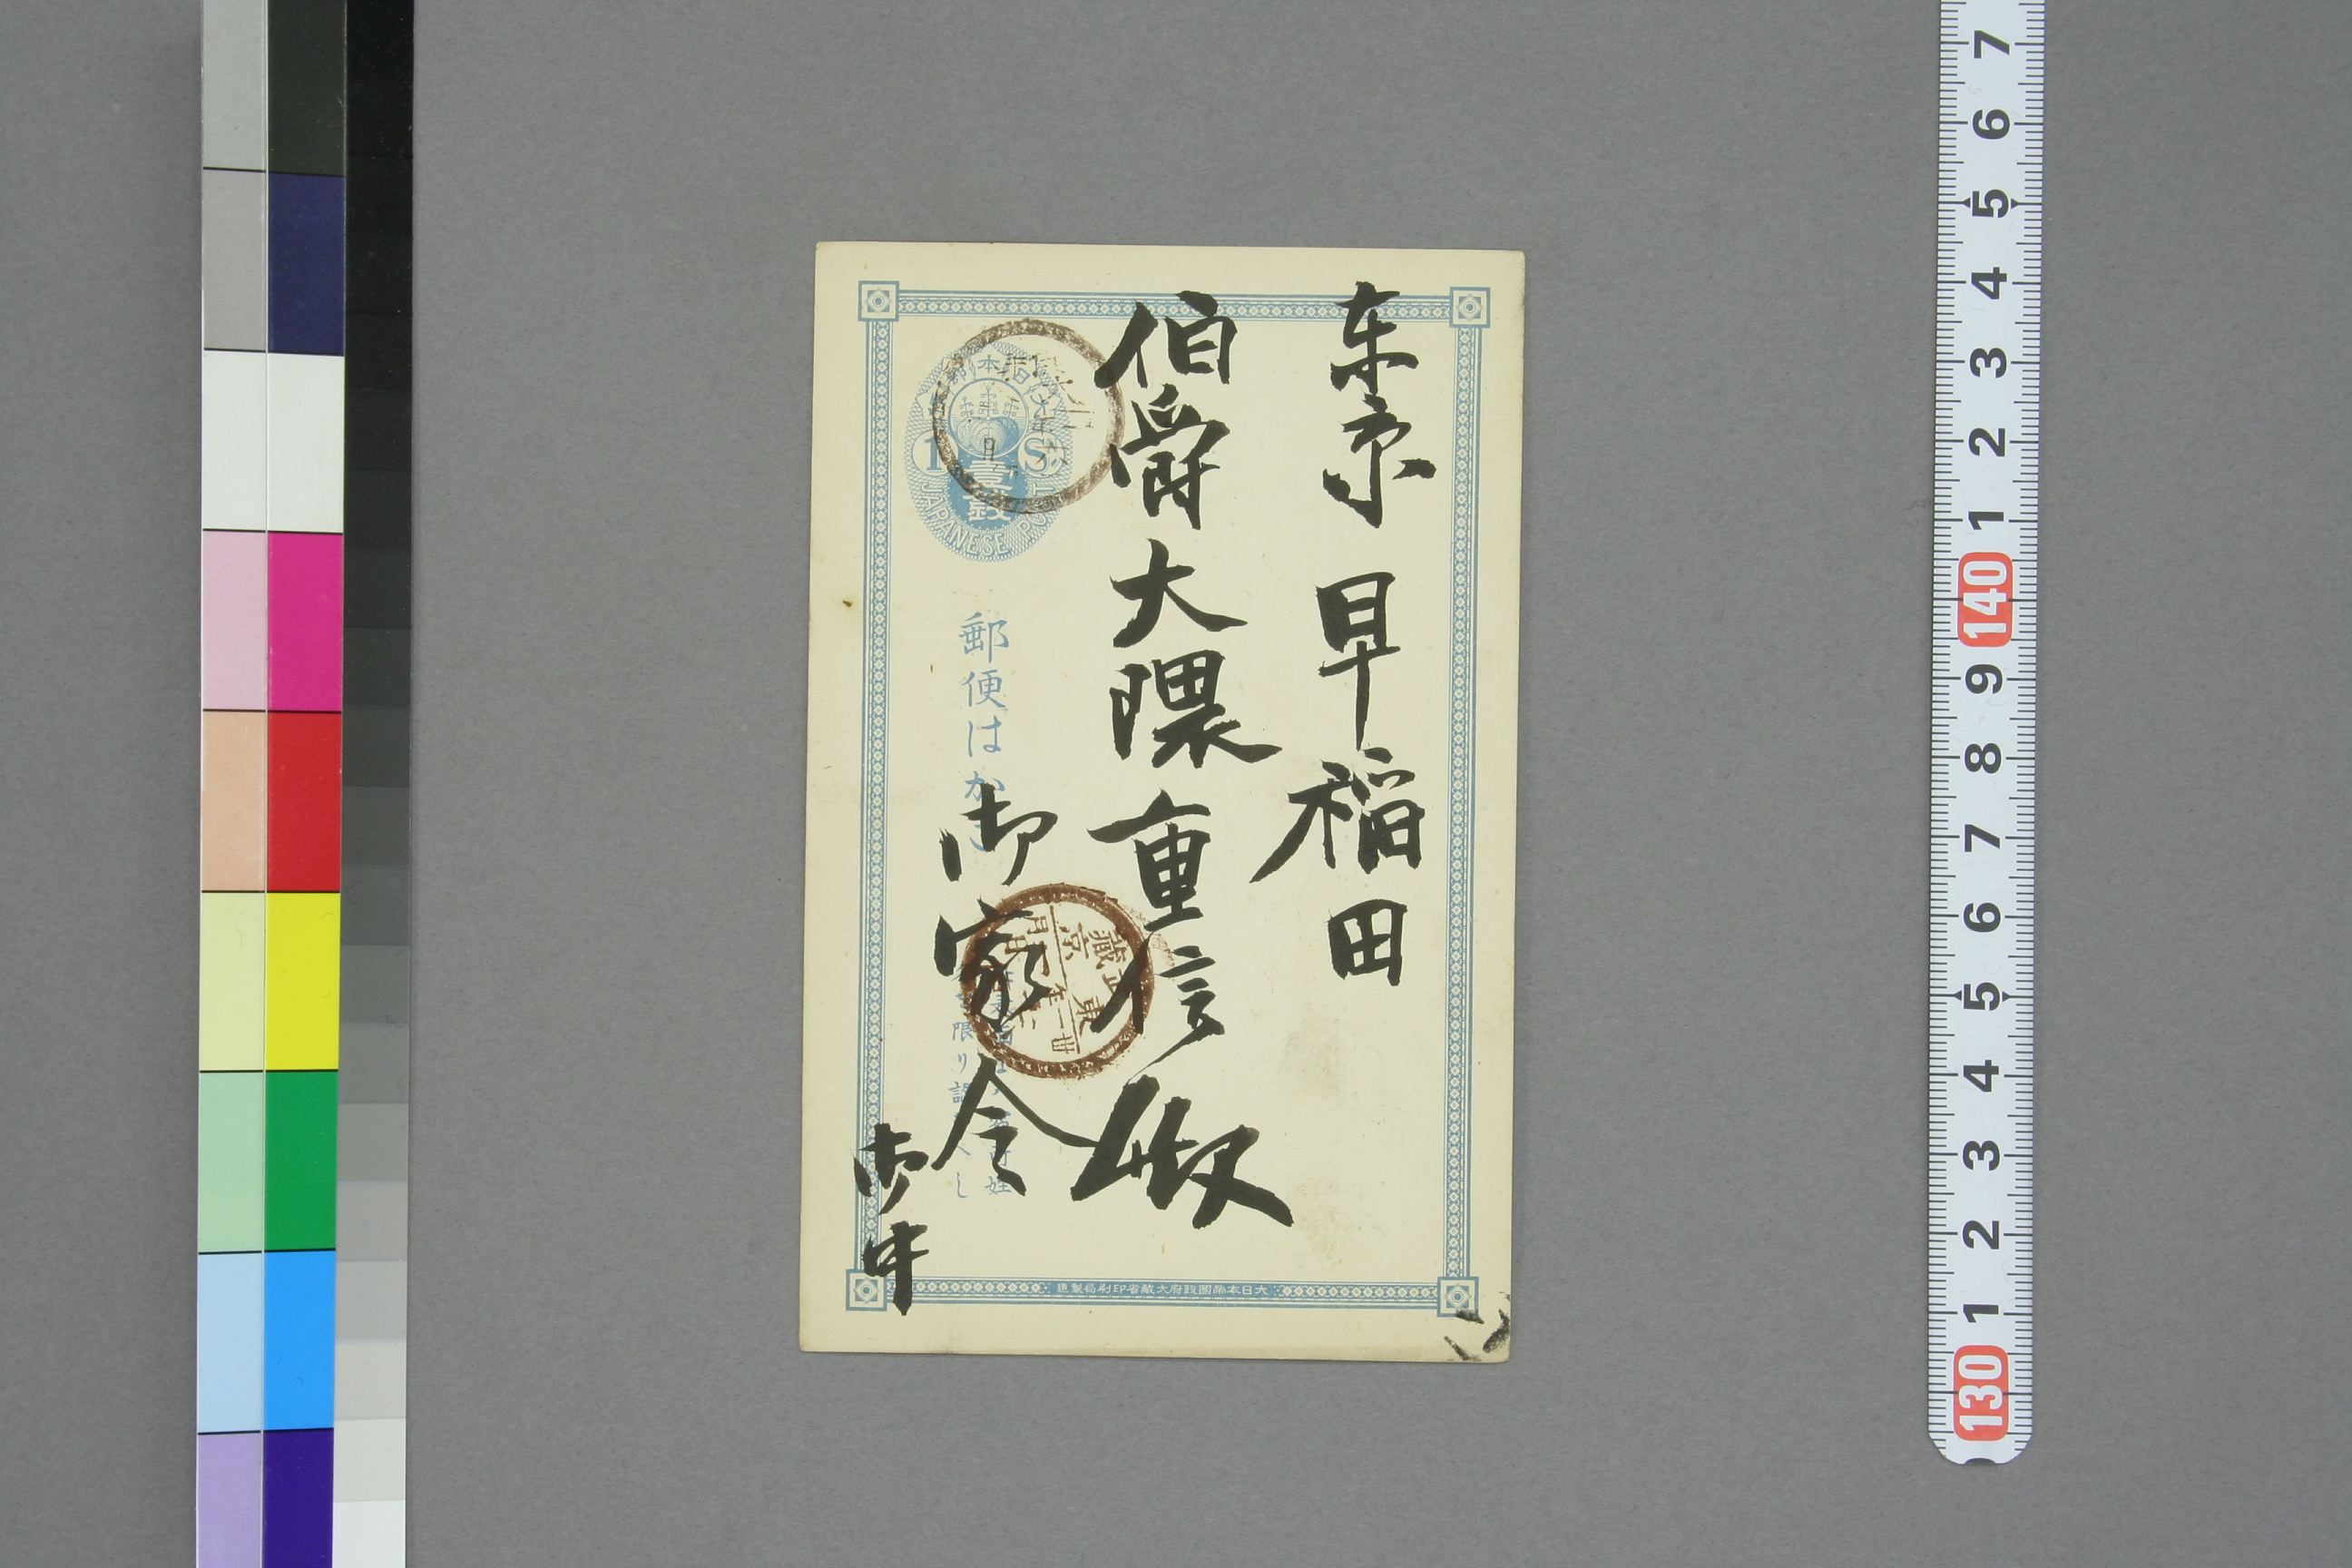 东京早稲田
伯爵大隈重信殿
御家令
御中
郵便はかき
日本郵
壹錢
1 S
JAPANESE PO
限リ認
大日本帝國政府大藏省印刷局製造
武藏
東京
7
6
5
4
3
2
1
140
9
8
7
6
5
4
3
2
1
130